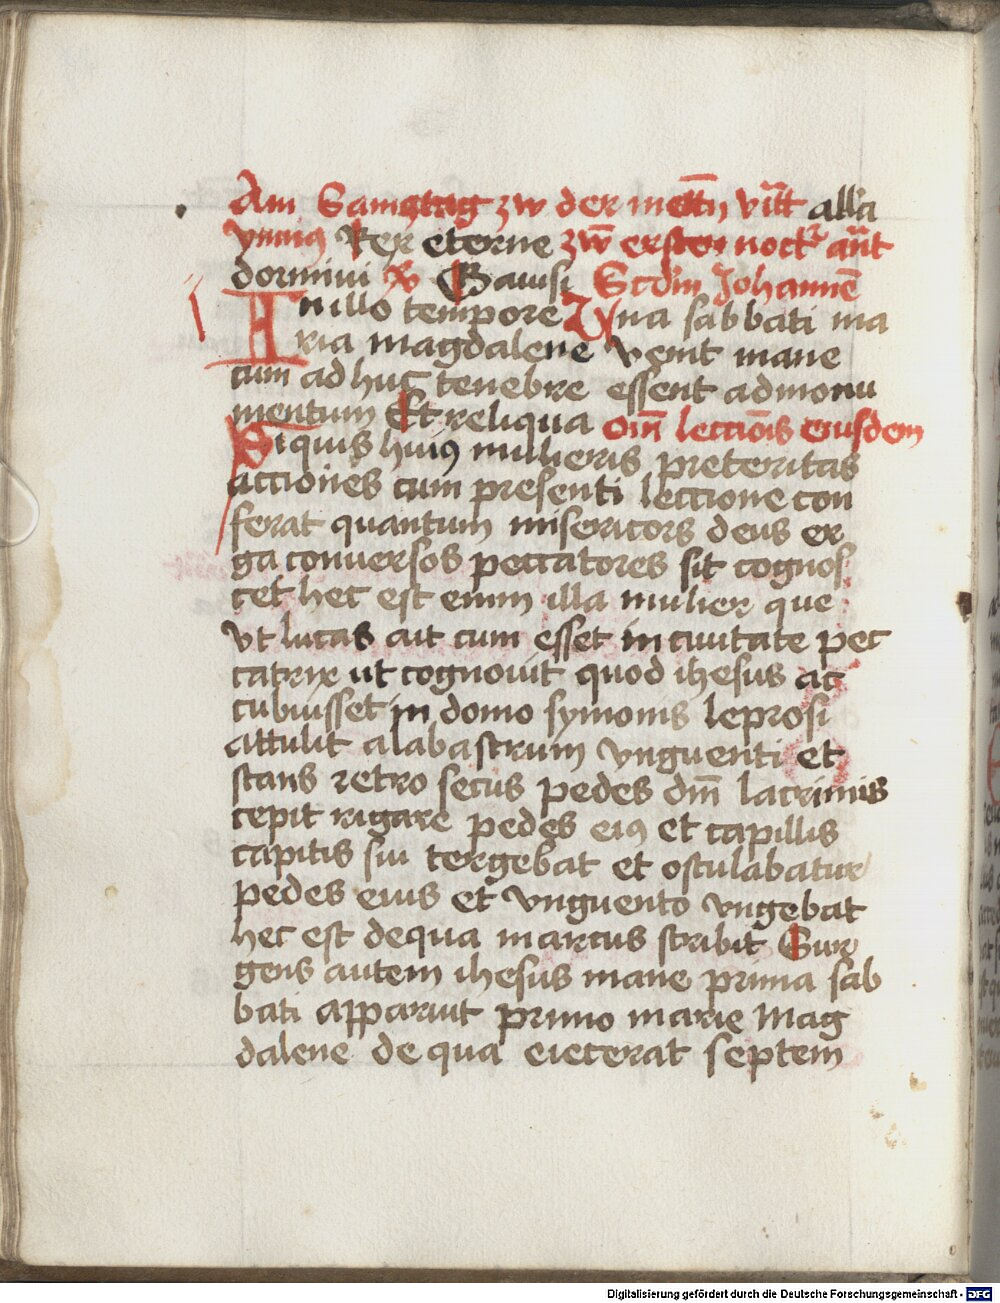 Am Samcztag zw der mettn vitt all'a
ymnus Rex eterne zw̄ ersten nockt' ant
dormivi ꝶ Gavisi Scdm Johannē
In illo tempore Una sabbati ma
ria magdalene venit mane
cum adhuc tenebre essent ad monu
mentum Et reliqua Om̄ leccionis eiusdem
Si quis huiꝰ mulieris preteritas
acciones cum presenti leccione con
ferat quantum misericors deus er
ga conuersos peccatores sit cognos
cet hec est enim illa mulier que
vt lucas ait cum esset in ciuitate pec
catrix ut cognouit quod ihesus ac
cubuisset in domo symonis leprosi
attulit alabastrum vnguenti et
stans retro secus pedes dm̄ lacrimis
cepit rigare pedes eiꝰ et capillis
capitis sui tergebat et osculabatur
pedes eius et vnguento vngebat
hec est de qua marcus scribit Sur
gens autem ihesus mane prima sab
bati apparuit primo marie Mag
dalene de qua eiecerat septem
Digitalisierung gefördert durch die Deutsche Forschungsgemeinschaft - DFG